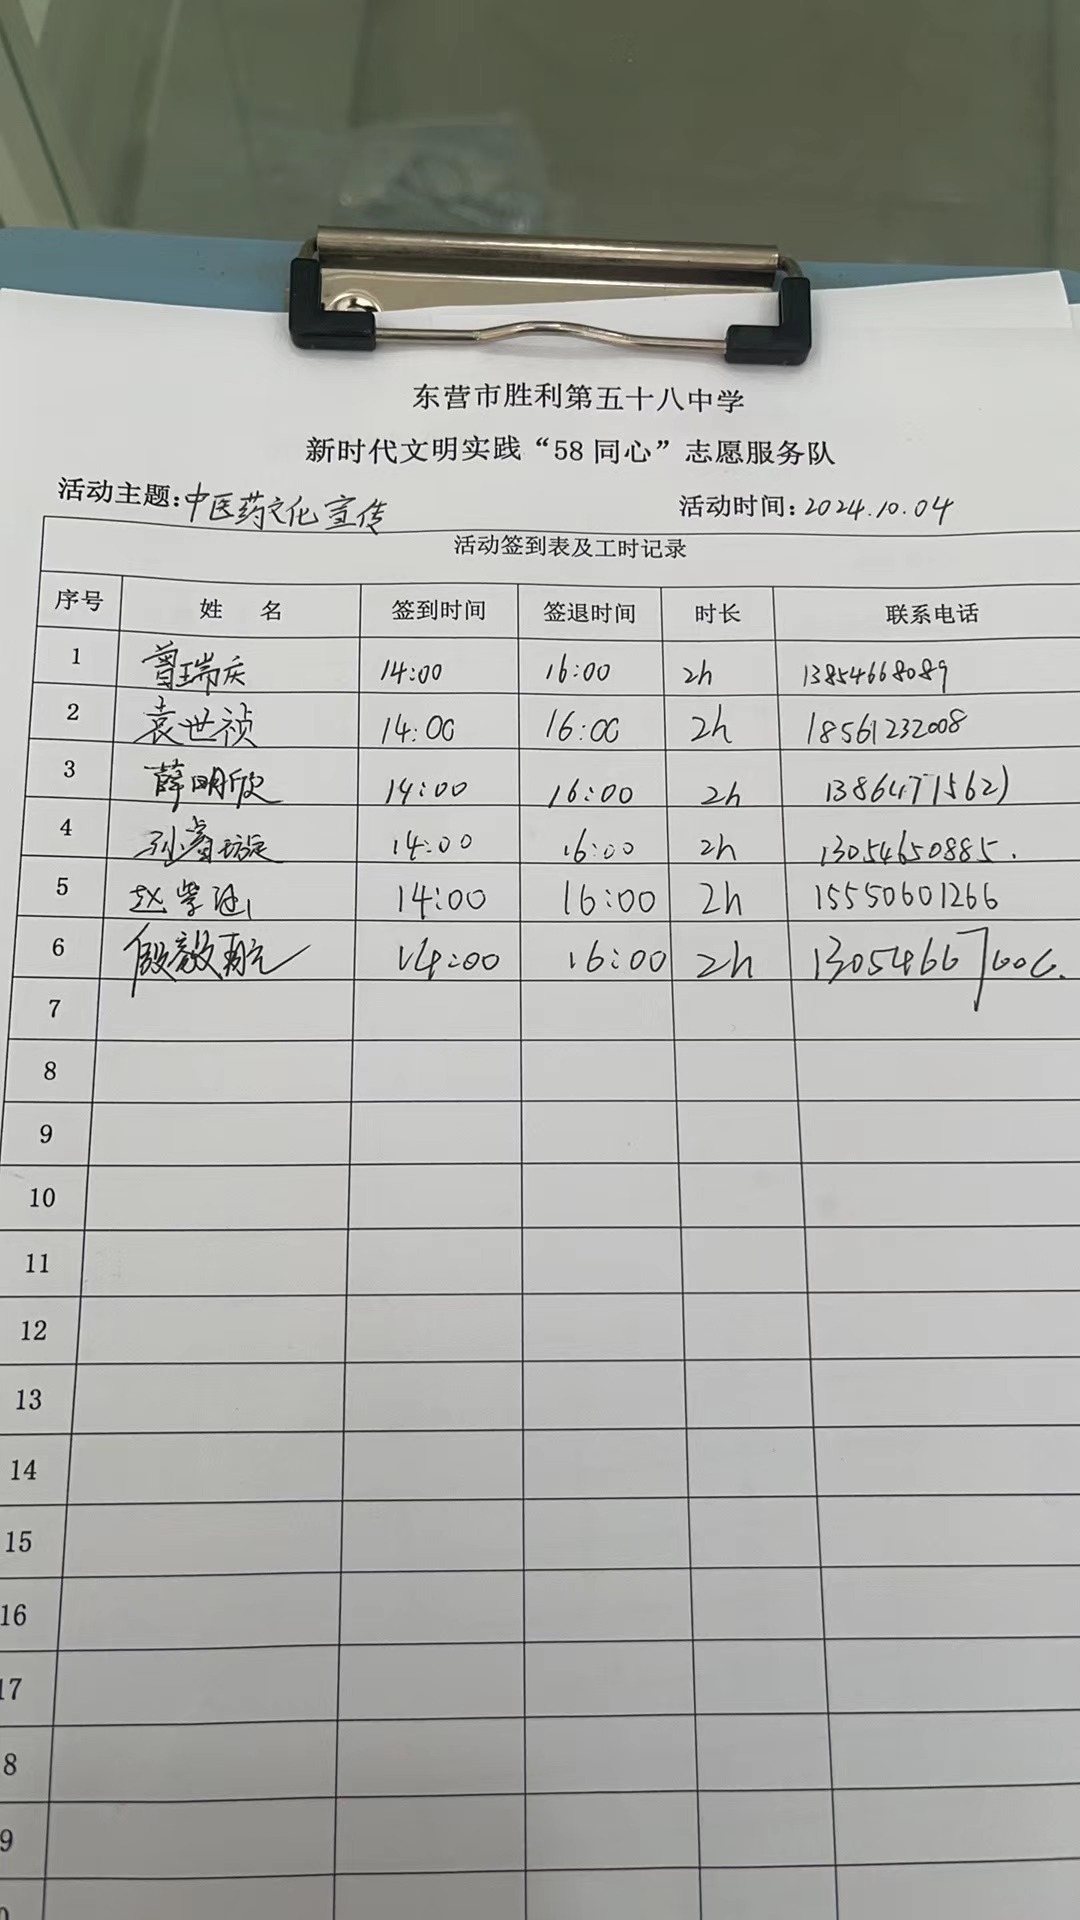 东营市胜利第五十八中学
新时代文明实践“58同心”志愿服务队
活动主题:中医药文化宣传 活动时间:2024.10.04
活动签到表及工时记录
序号 姓 名 签到时间 签退时间 时长 联系电话
1 曾瑞庆 14:00 16:00 2h 13854668089
2 袁世祯 14:00 16:00 2h 18561232008
3 薛明欣 14:00 16:00 2h
4 14:00 16:00 2h 13054650885.
5 赵紫涵 14:00 16:00 2h 15550601266
6 殷毅翔 14:00 16:00 2h
7
8
9
10
11
12
13
14
15
16
17
8
9